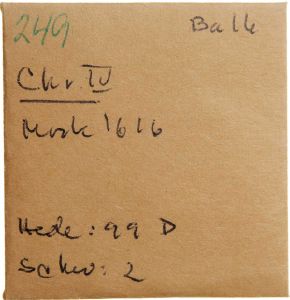 249 Balk
Chr. IV
Mark 1616
Hede: 99 D
Schou: 2